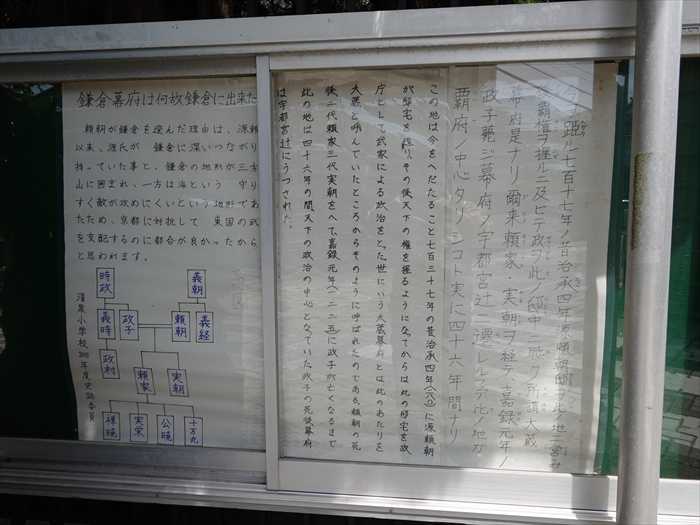 鎌倉幕府は何故鎌倉に出来た
頼朝が鎌倉を選んだ理由は、源頼
以来、源氏が鎌倉に深いつながり
持っていた事と、鎌倉の地形が三方
山に囲まれ、一方は海という 守り
すく敵が攻めにくいという地形であ
たため、京都に対抗して 東国の武
を支配するのに都合が良かったから
と思われます。
時政
義朝
義時
政子
頼朝
義経
政村
頼家
実朝
栄実
公暁
千万丸
清泉小学校
年度史跡委員
今ヲ距ル七百十七年ノ昔治承四年
覇権ヲ握ルニ及ビテ政ヲ此ノ邸中ニ聴ク所謂大蔵
幕府是ナリ爾来頼家・実朝ヲ経テ嘉録元年ノ
政子薨ジ幕府ノ宇都宮辻ニ遷レルマデ此ノ地ガ
覇府ノ中心タリシコト実ニ四十六年間ナリ
この地は今をへだたること七百三十七年の昔治承四年に源頼朝
が邸宅を造り、その後天下の権を握るようになってからは此の邸宅を政
庁として武家による政治をとった世にいう大蔵幕府とは此のあたりを
大蔵と呼んでいたところからそのように呼ばれたのである。頼朝の死
後二代頼家三代実朝をへて嘉録元年(一二二五)に政子が亡くなるまで
此の地は四十六年の間天下の政治の中心となっていた。政子の死後幕府
は宇都宮辻にうつされた。